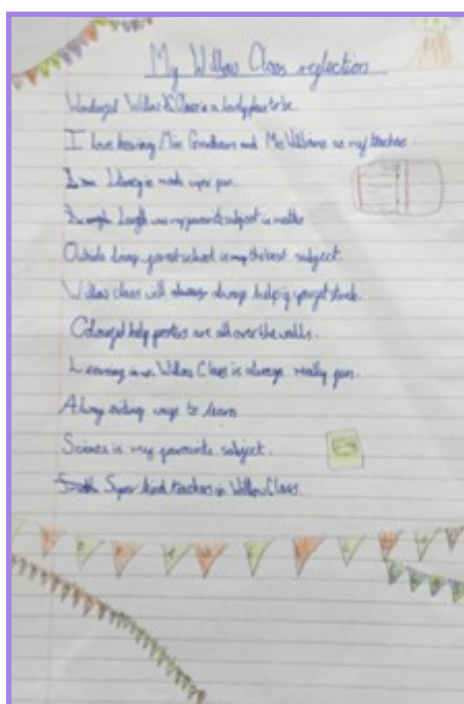 My Willow Class reflection
Wonderful Willow Class is a lovely place to be.
I love having Miss and Mr Williams as my teachers.
Literacy is made super fun.
Length was my favourite subject in maths
Outside living forest school is my the best subject.
Willow class will always always help if you get stuck.
Colourful help posters are all over the walls.
Learning in Willow Class is always really fun.
Always exciting ways to learn
Science is my favourite subject.
Super kind teachers in Willow Class.